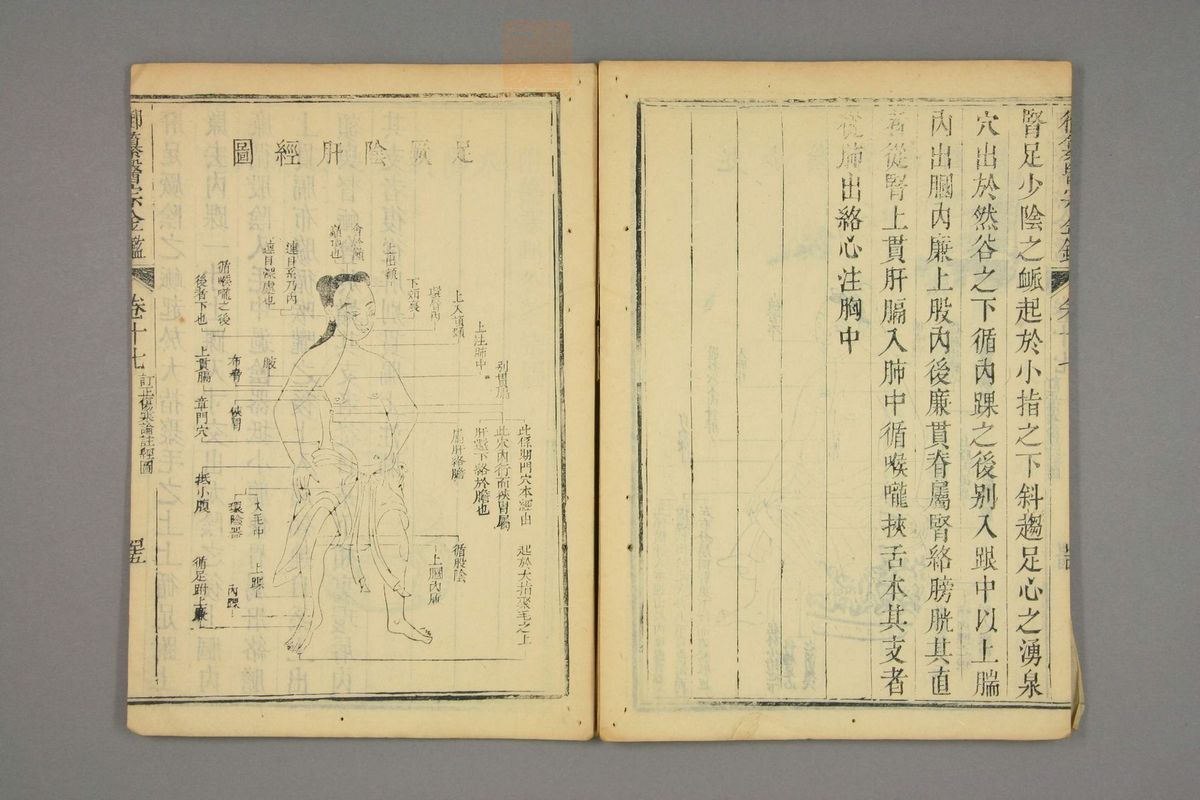 腎足少陰之脈起於小指之下斜趨足心之湧泉
穴出於然谷之下循內踝之後別入跟中以上腨
內出膕內廉上股內後廉貫脊屬腎絡膀胱其直
者從腎上貫肝膈入肺中循喉嚨挾舌本其支者
從肺出絡心注胸中
足厥陰肝經圖
此係期門穴本經由
此穴內行而挾胃屬
肝還下絡於膽也
屬肝絡膽
起於大指聚毛之上
別貫膈
上注肺中
上入頏顙
環唇內
下頰裏
上出額
連目系乃內
連目深處也
循喉嚨之後
後者下也
上貫膈
布脅
章門穴
挾胃
抵小腹
入毛中
環陰器
循股陰
上膕內廉
上踝
內踝
循足跗上廉
御纂醫宗金鑑
卷十七
訂正傷寒論註經圖